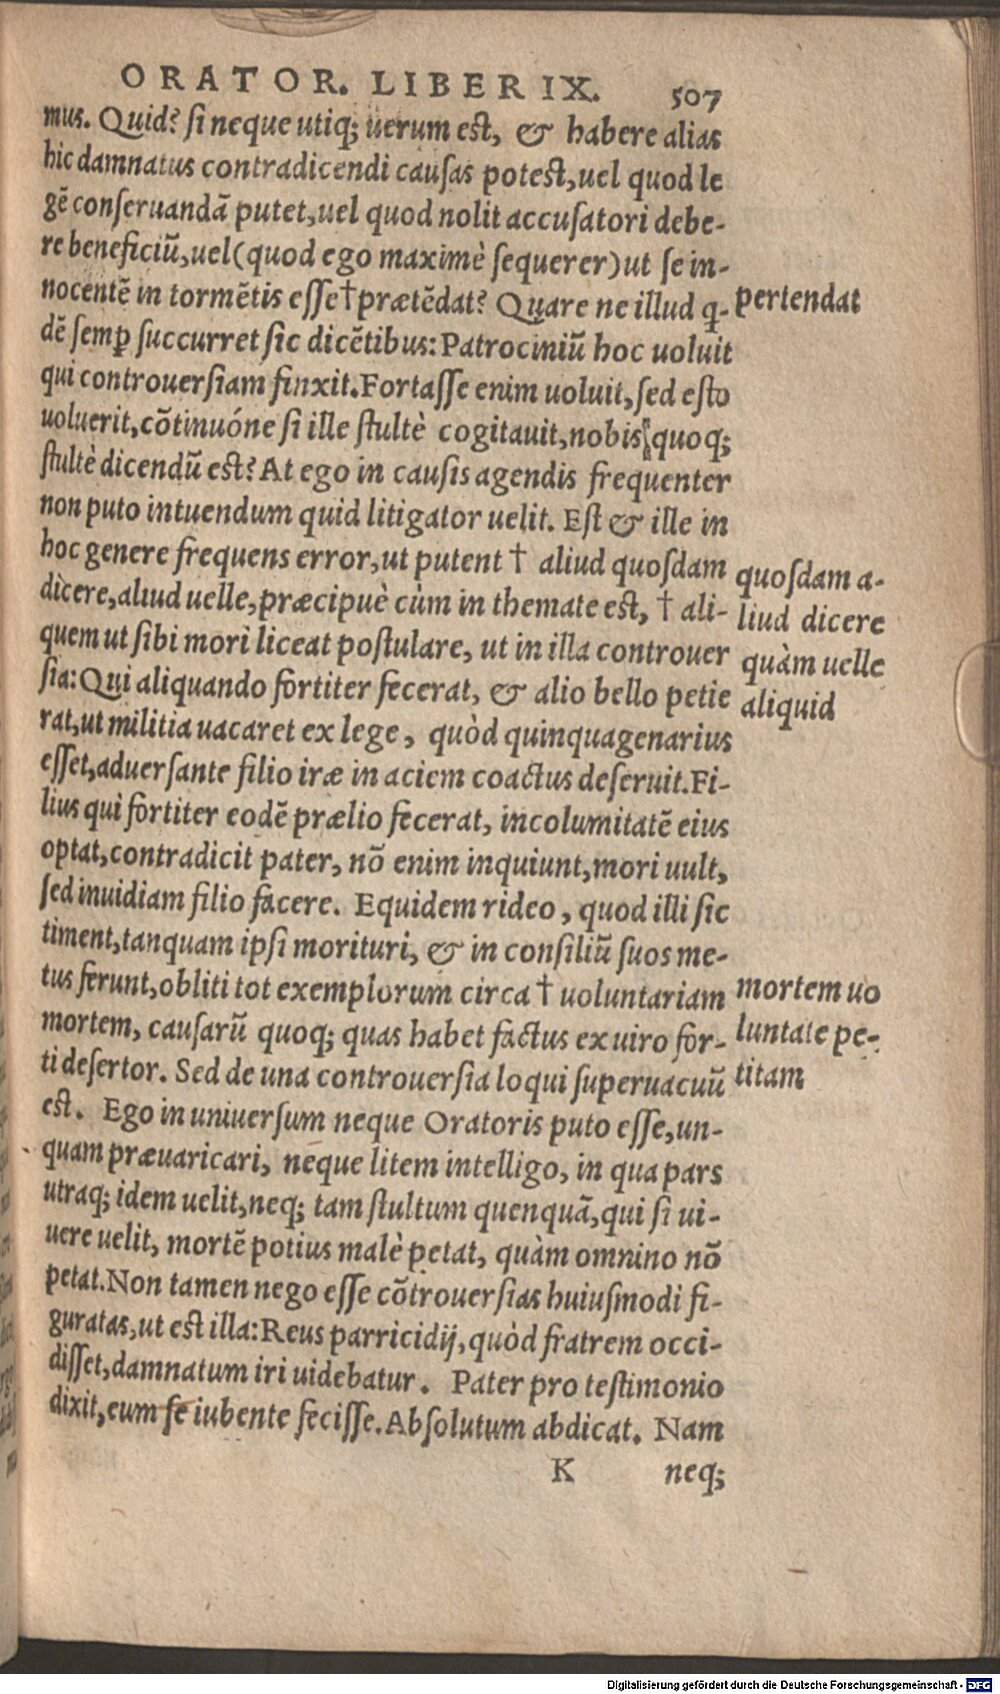 ORATOR. LIBER IX. 507
mus. Quid? si neque utiq; uerum est, & habere alias
hic damnatus contradicendi causas potest, uel quod le
gē conseruandā putet, uel quod nolit accusatori debe-
re beneficiū, uel (quod ego maximè sequerer) ut se in-
nocentē in tormētis esse † prætēdat? Quare ne illud q-
pertendat
dē semp succurret sic dicētibus: Patrociniū hoc uoluit
qui controuersiam finxit. Fortasse enim uoluit, sed esto
uoluerit, cōtinuóne si ille stultè cogitauit, nobis quoq;
stultè dicendū est? At ego in causis agendis frequenter
non puto intuendum quid litigator uelit. Est & ille in
hoc genere frequens error, ut putent † aliud quosdam
quosdam a-
dicere, aliud uelle, præcipuè cùm in themate est, † ali-
liud dicere
quem ut sibi mori liceat postulare, ut in illa controuer
quàm uelle
sia: Qui aliquando fortiter fecerat, & alio bello petie
aliquid
rat, ut militia uacaret ex lege, quòd quinquagenarius
esset, aduersante filio iræ in aciem coactus deseruit. Fi-
lius qui fortiter eodē prælio fecerat, incolumitatē eius
optat, contradicit pater, nō enim inquiunt, mori uult,
sed inuidiam filio facere. Equidem rideo, quod illi sic
timent, tanquam ipsi morituri, & in consiliū suos me-
tus ferunt, obliti tot exemplorum circa † uoluntariam
mortem uo
mortem, causarū quoq; quas habet factus ex uiro for-
luntate pe-
ti desertor. Sed de una controuersia loqui superuacuū
titam
est. Ego in uniuersum neque Oratoris puto esse, un-
quam præuaricari, neque litem intelligo, in qua pars
utraq; idem uelit, neq; tam stultum quenquā, qui si ui-
uere uelit, mortē potius malè petat, quàm omnino nō
petat. Non tamen nego esse cōtrouersias huiusmodi fi-
guratas, ut est illa: Reus parricidij, quòd fratrem occi-
disset, damnatum iri uidebatur. Pater pro testimonio
dixit, eum se iubente fecisse. Absolutum abdicat. Nam
K neq;
Digitalisierung gefördert durch die Deutsche Forschungsgemeinschaft - DFG